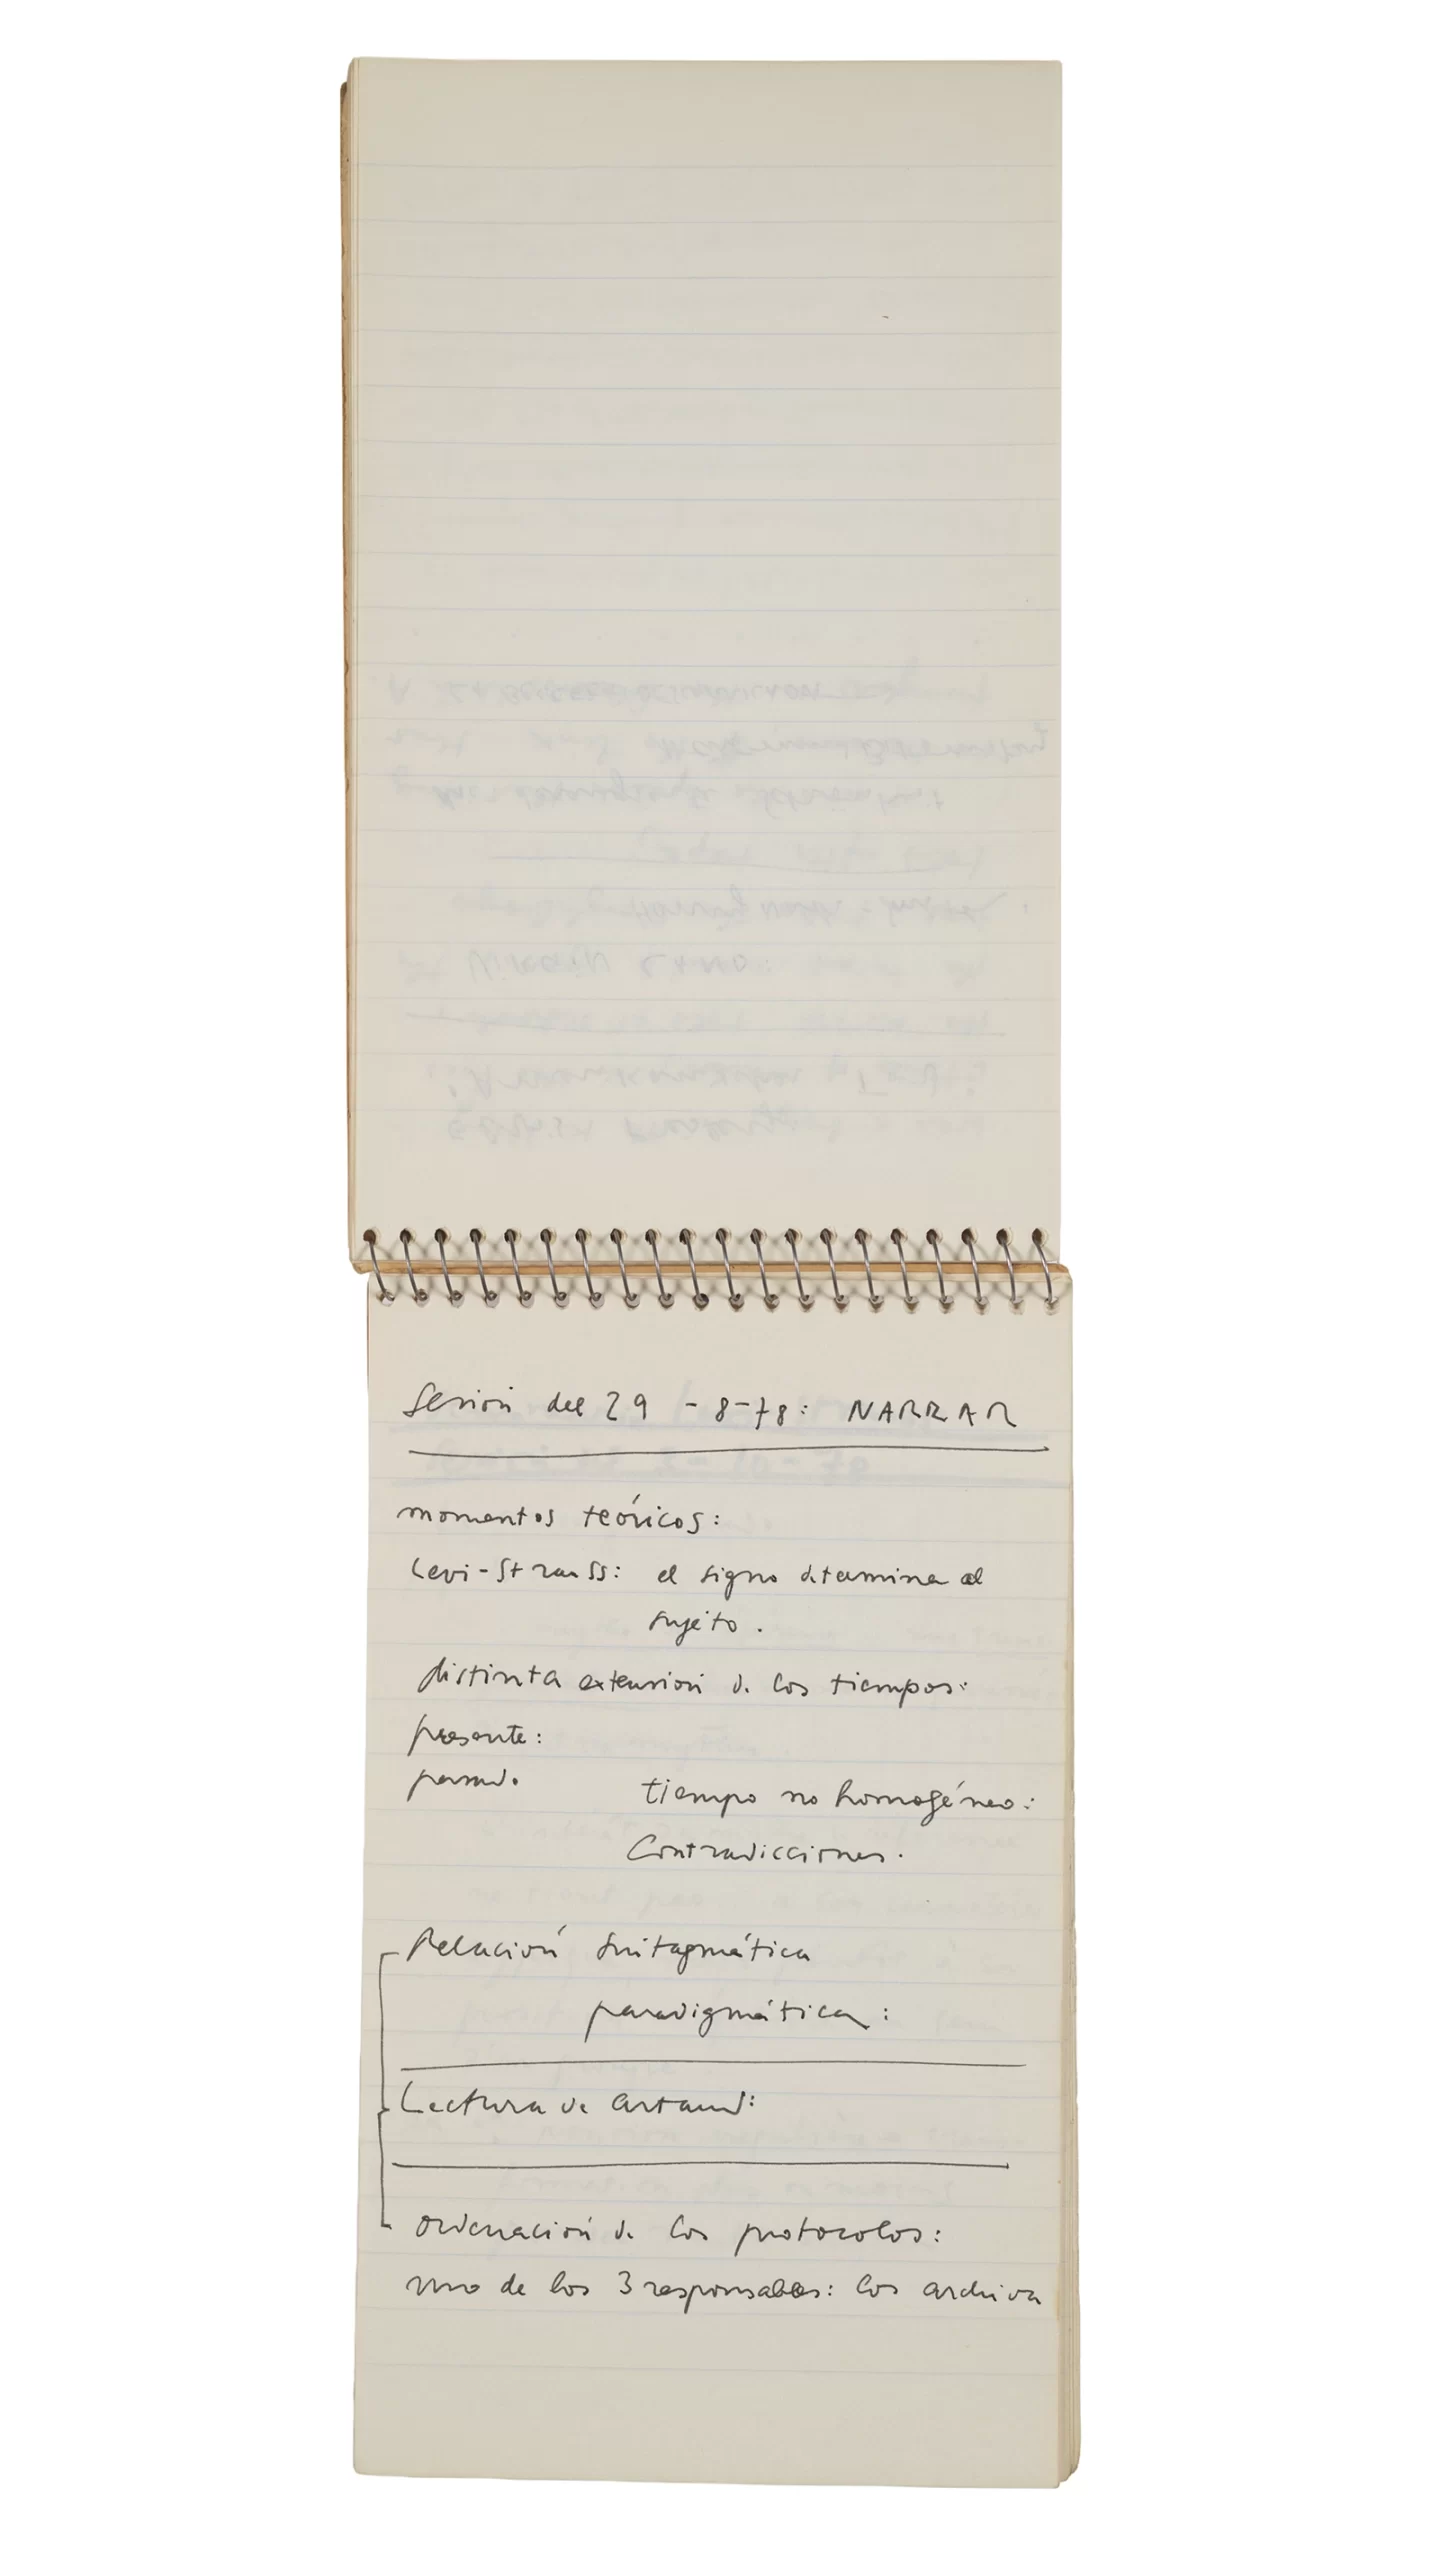 Sesión del 29 - 8-78: NARRAR
momentos teóricos:
Levi-Strauss: el signo determina al
sujeto.
distinta extensión de los tiempos:
presente:
pasado
tiempo no homogéneo:
Contradicciones.
Relación sintagmática
paradigmática:
Lectura de Artaud:
ordenación de los protocolos:
uno de los 3 responsables: los archiva